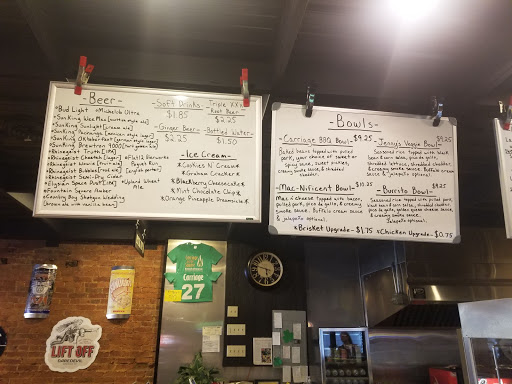 -Beer-
*Bud Light *Michelob Ultra
*Sun King Wee Mac [scottish style ale]
*Sun King Sunlight [cream ale]
*Sun King Pachanga [mexican style lager]
*Sun King Oktober-Fest [german style lager]
*Rhinegeist Truth [IPA]
*Rhinegeist Cheetah [lager]
*Rhinegeist Bubbles [Rosé ale]
*Elysian Space Dust [IPA]
*Fountain Square Amber
*Country Boy Shotgun Wedding
[brown ale with vanilla beans]
*Upland Wheat Ale
-Soft Drinks-
$1.85
Triple XXX Root Beer
$2.25
-Ginger Beer-
$2.25
-Bottled Water-
$1.50
-Ice Cream-
*Cookies N' Cream*
*Graham Cracker*
*Blackberry Cheesecake*
*Mint Chocolate Chip*
*Orange Pineapple Dreamsicle*
-Bowls-
-Carriage BBQ Bowl- $9.25
Baked beans topped with pulled
pork, your choice of sweet or
spicy sauce, sweet pickles,
creamy smoke sauce & shredded
cheddar.
-Jenny's Veggie Bowl- $9.25
Seasoned rice topped with black
bean & corn salsa, pico de gallo,
shredded lettuce, shredded cheddar,
& creamy smoke sauce,
jalapeño optional.
-Mac-Nificent Bowl- $10.25
Mac n' cheese topped with bacon,
pulled pork, pico de gallo, & creamy
smoke sauce. Buffalo cream sauce
& jalapeño optional.
-Burrito Bowl- $9.25
Seasoned rice topped with pulled
pork, bean & corn salsa, shredded cheddar,
pico de gallo, queso cheese sauce &
creamy smoke sauce.
Jalapeño optional.
*Brisket Upgrade- $1.75 *Chicken Upgrade- $0.75
Carriage
27
LIFT OFF